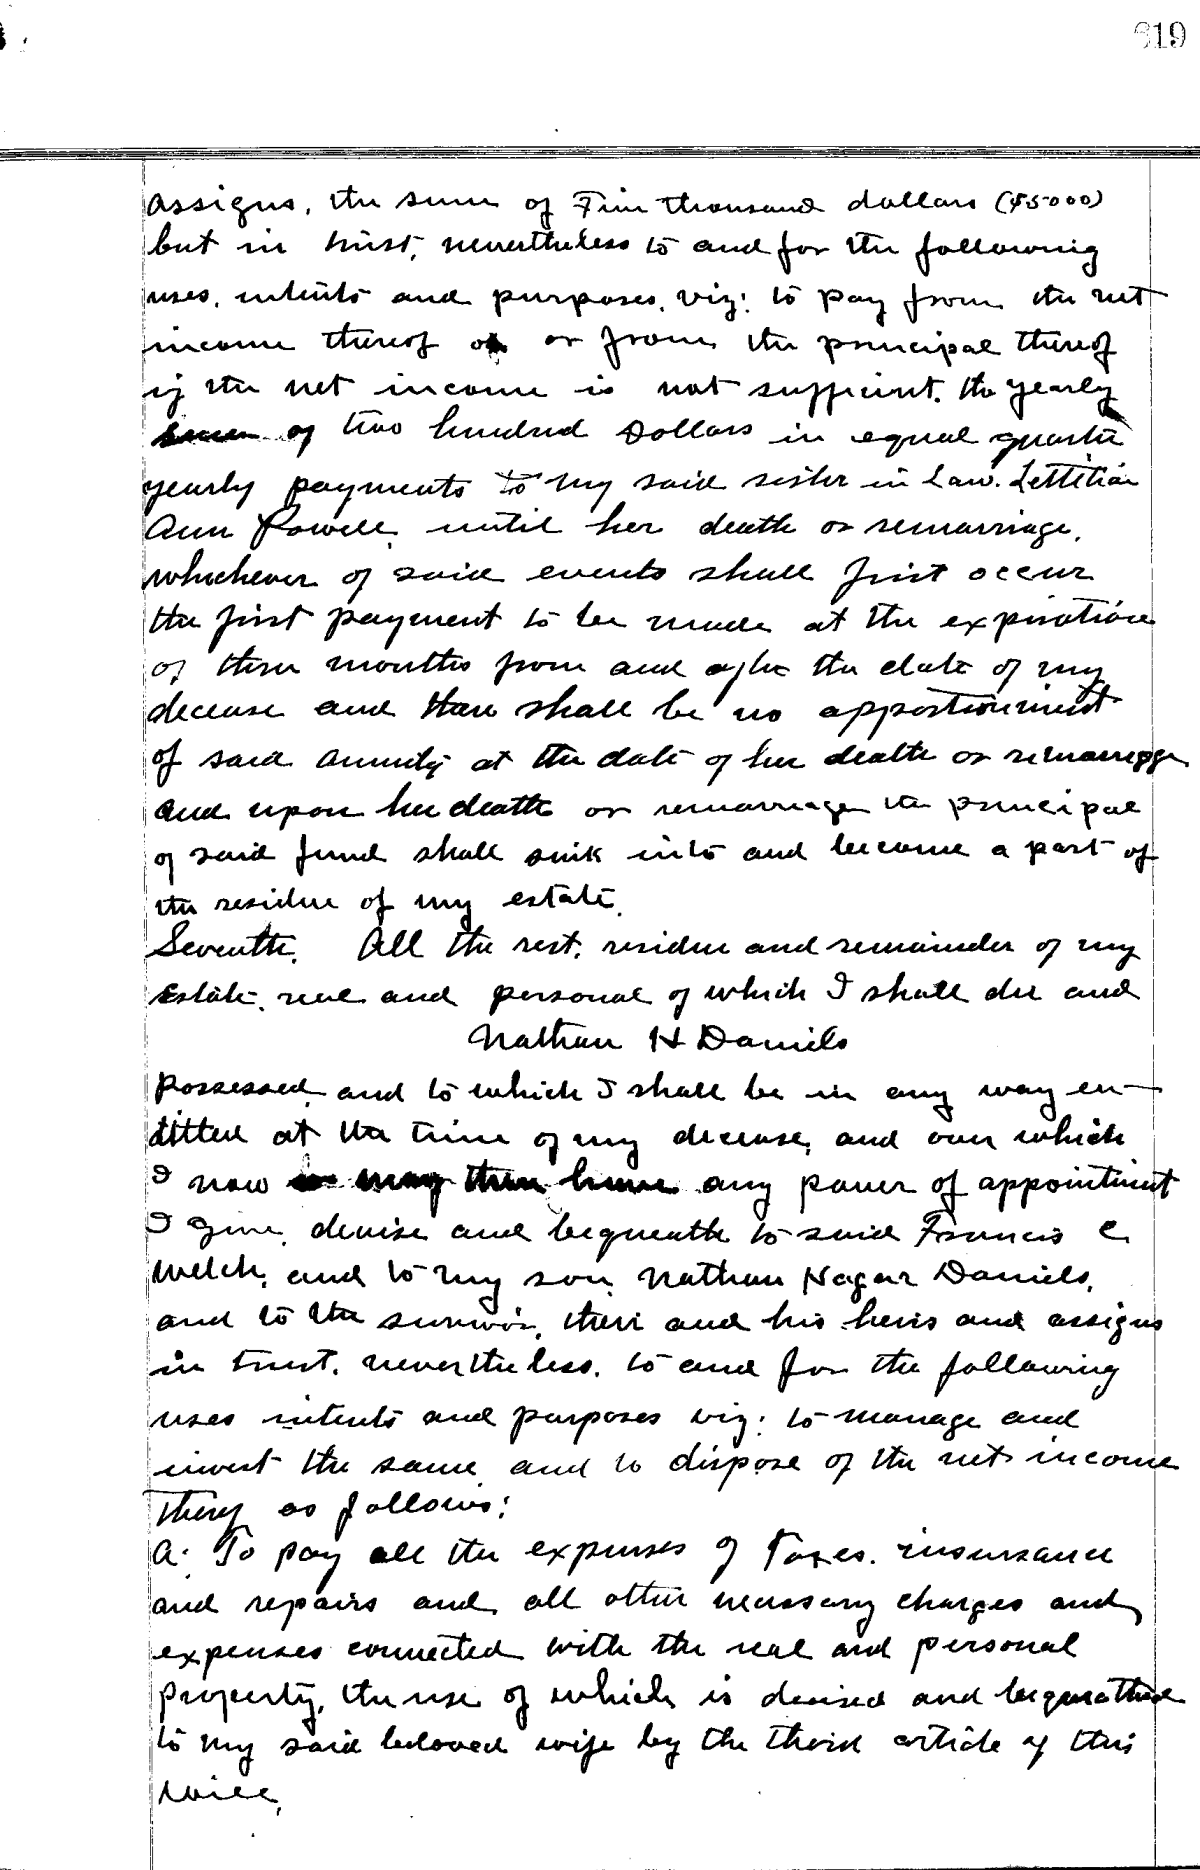 619
assigns, the sum of Five thousand dollars ($5000)
but in trust, nevertheless to and for the following
uses, intents and purposes, viz: to pay from the net
income thereof or from the principal thereof
if the net income is not sufficient, the yearly
sum of two hundred Dollars in equal quarter
yearly payments to my said sister in Law. Lettitia
Ann Powell, until her death or remarriage,
whichever of said events shall first occur
the first payment to be made at the expiration
of three months from and after the date of my
decease and there shall be no apportionment
of said annuity at the date of her death or remarriage
and upon her death or remarriage the principal
of said fund shall sink into and become a part of
the residue of my estate.
Seventh. All the rest, residue and remainder of my
Estate, real and personal of which I shall die and
Nathan H Daniels
possessed, and to which I shall be in any way en-
titled at the time of my decease, and over which
I now or may then have any power of appointment
I give, devise and bequeath to said Francis C.
Welch, and to my son, Nathan Hagar Daniels,
and to the survivor, their and his heirs and assigns
in trust, nevertheless, to and for the following
uses intents and purposes viz: to manage and
invest the same and to dispose of the net income
thereof as follows:
A: To pay all the expenses of Taxes, insurance
and repairs and all other necessary charges and
expenses connected with the real and personal
property, the use of which is devised and bequeathed
to my said beloved wife by the third article of this
will,